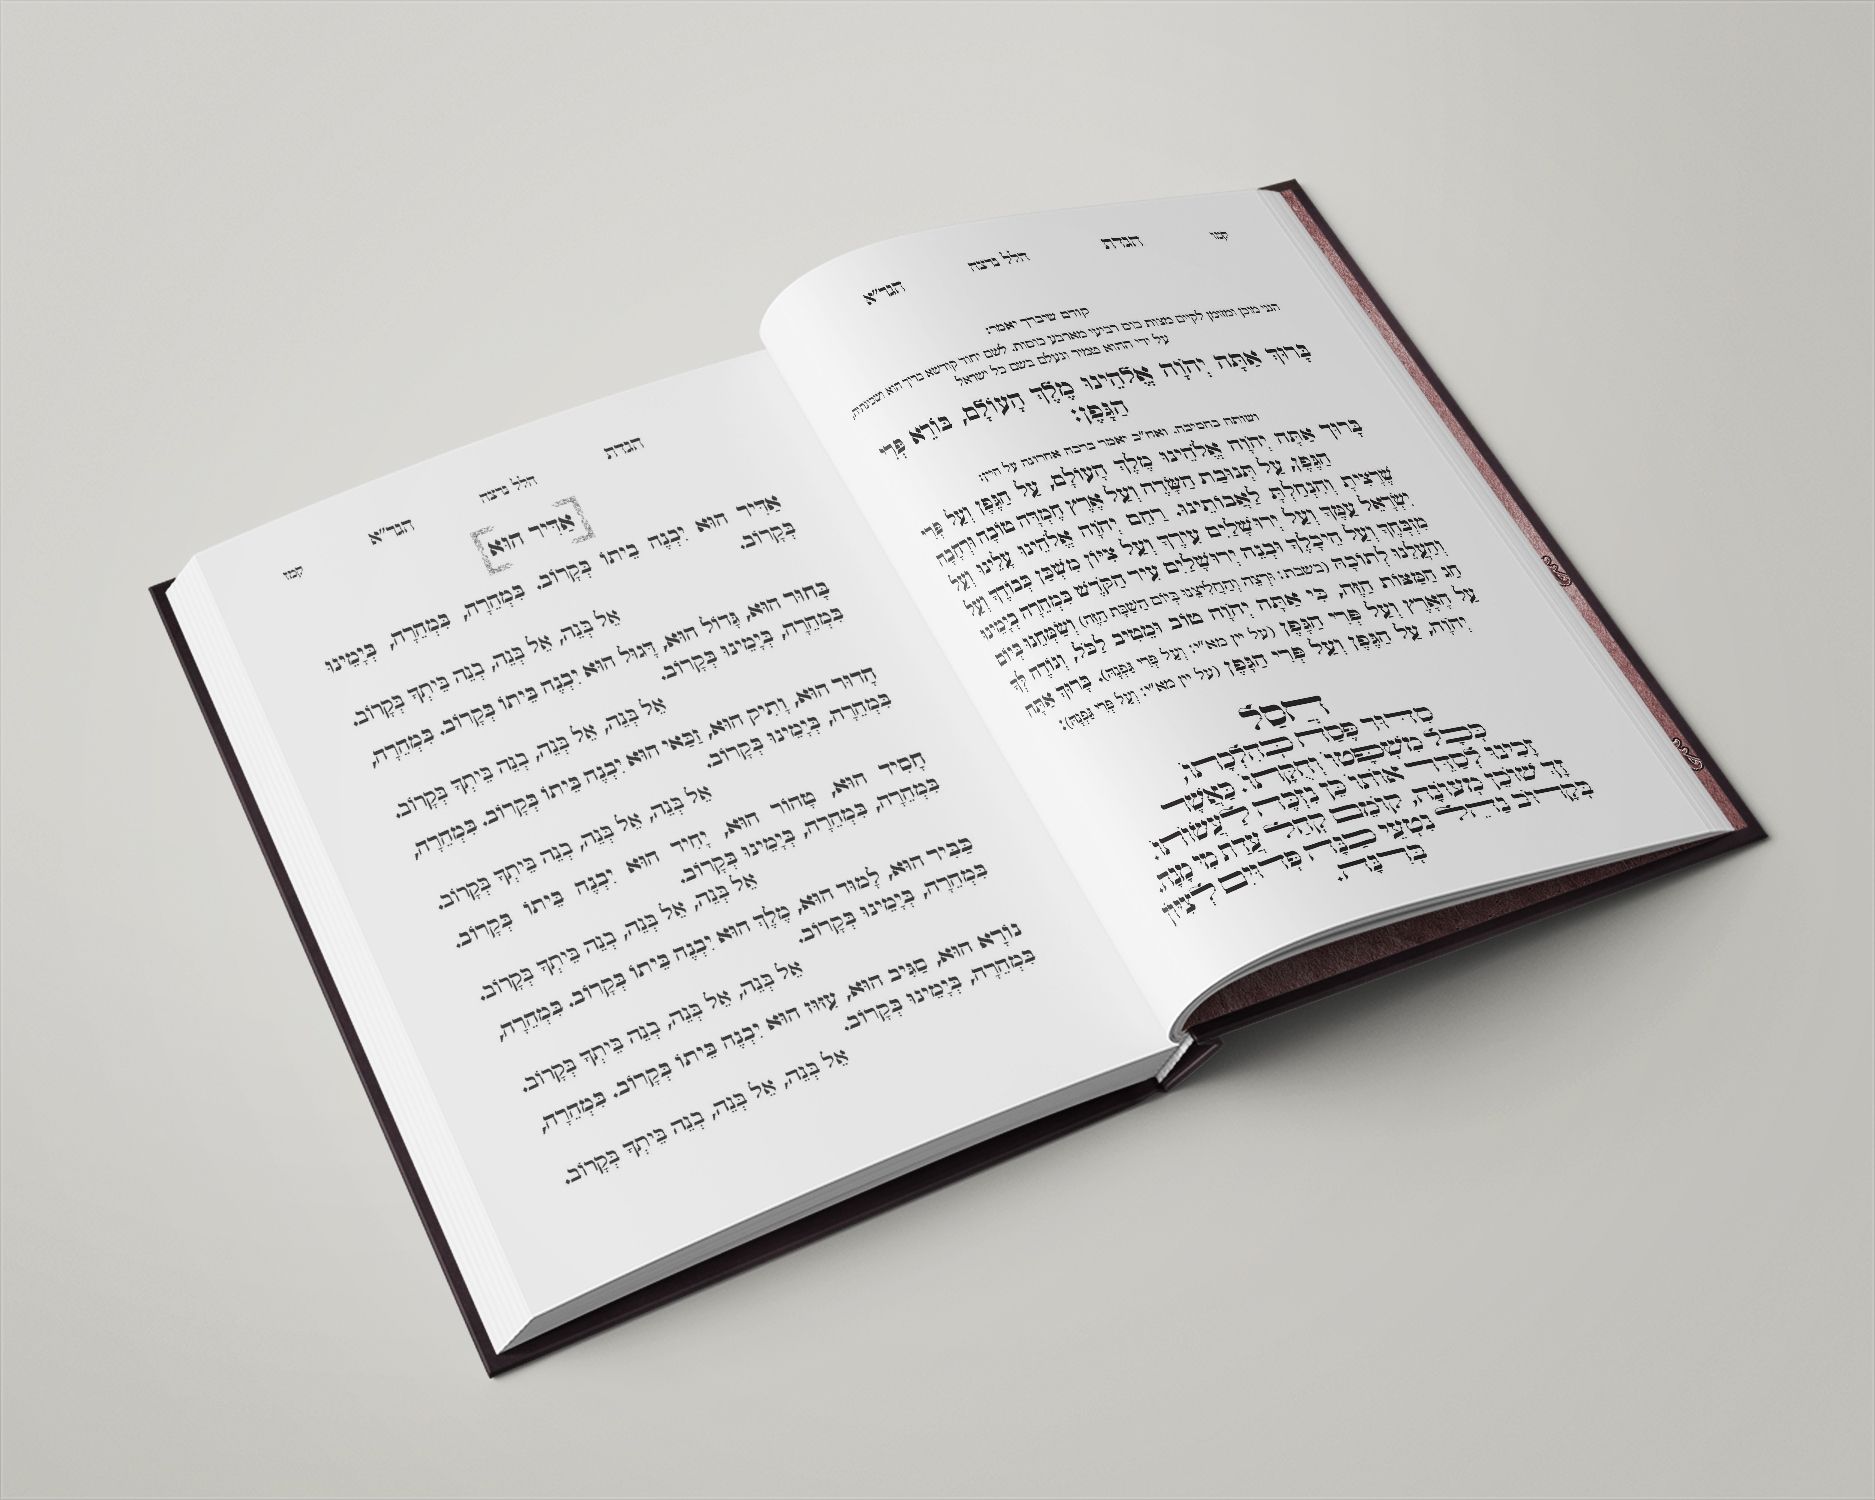 קמו הגדת הלל נרצה הגר"א
קודם שיברך יאמר:
הנני מוכן ומזומן לקיים מצות כוס רביעי מארבע כוסות. לשם יחוד קודשא בריך הוא ושכינתיה,
על ידי ההוא טמיר ונעלם בשם כל ישראל
בָּרוּךְ אַתָּה יְהֹוָה אֱלֹהֵינוּ מֶלֶךְ הָעוֹלָם, בּוֹרֵא פְּרִי
הַגָּפֶן:
ושותה בהסיבה. ואח"כ יאמר ברכה אחרונה על היין:
בָּרוּךְ אַתָּה יְהֹוָה אֱלֹהֵינוּ מֶלֶךְ הָעוֹלָם, עַל הַגֶּפֶן וְעַל פְּרִי
הַגֶּפֶן, עַל תְּנוּבַת הַשָּׂדֶה וְעַל אֶרֶץ חֶמְדָּה טוֹבָה וּרְחָבָה
שֶׁרָצִיתָ וְהִנְחַלְתָּ לַאֲבוֹתֵינוּ. רַחֵם יְהֹוָה אֱלֹהֵינוּ עָלֵינוּ וְעַל
יִשְׂרָאֵל עַמֶּךָ וְעַל יְרוּשָׁלַיִם עִירֶךָ וְעַל צִיּוֹן מִשְׁכַּן כְּבוֹדֶךָ וְעַל
מִזְבְּחֶךָ וְעַל הֵיכָלֶךָ וּבְנֵה יְרוּשָׁלַיִם עִיר הַקֹּדֶשׁ בִּמְהֵרָה בְיָמֵינוּ
וְהַעֲלֵנוּ לְתוֹכָהּ (בשבת: וּרְצֵה וְהַחֲלִיצֵנוּ בְּיוֹם הַשַּׁבָּת הַזֶּה) וְשַׂמְּחֵנוּ בְּיוֹם
חַג הַמַּצּוֹת הַזֶּה, כִּי אַתָּה יְהֹוָה טוֹב וּמֵטִיב לַכֹּל, וְנוֹדֶה לְּךָ
עַל הָאָרֶץ וְעַל פְּרִי הַגָּפֶן (על יין מא"י: וְעַל פְּרִי גַפְנָהּ). בָּרוּךְ אַתָּה
יְהֹוָה, עַל הַגֶּפֶן וְעַל פְּרִי הַגָּפֶן (על יין מא"י: וְעַל פְּרִי גַפְנָהּ):
חֲסַל
סִדּוּר פֶּסַח כְּהִלְכָתוֹ,
כְּכָל מִשְׁפָּטוֹ וְחֻקָּתוֹ. כַּאֲשֶׁר
זָכִינוּ לְסַדֵּר אוֹתוֹ כֵּן נִזְכֶּה לַעֲשׂוֹתוֹ.
זָךְ שׁוֹכֵן מְעוֹנָה, קוֹמֵם קְהַל עֲדַת מִי מָנָה.
בְּקָרוֹב נַהֵל נִטְעֵי כַנָּה פְּדוּיִם לְצִיּוֹן
בְּרִנָּה.
הגדת הלל נרצה הגר"א קמז
אַדִּיר הוּא
אַדִּיר הוּא יִבְנֶה בֵּיתוֹ בְּקָרוֹב. בִּמְהֵרָה, בִּמְהֵרָה, בְּיָמֵינוּ
בְּקָרוֹב.
אֵל בְּנֵה, אֵל בְּנֵה, בְּנֵה בֵּיתְךָ בְּקָרוֹב.
בָּחוּר הוּא, גָּדוֹל הוּא, דָּגוּל הוּא יִבְנֶה בֵּיתוֹ בְּקָרוֹב. בִּמְהֵרָה,
בִּמְהֵרָה, בְּיָמֵינוּ בְּקָרוֹב.
אֵל בְּנֵה, אֵל בְּנֵה, בְּנֵה בֵּיתְךָ בְּקָרוֹב.
הָדוּר הוּא, וָתִיק הוּא, זַכַּאי הוּא יִבְנֶה בֵּיתוֹ בְּקָרוֹב. בִּמְהֵרָה,
בִּמְהֵרָה, בְּיָמֵינוּ בְּקָרוֹב.
אֵל בְּנֵה, אֵל בְּנֵה, בְּנֵה בֵּיתְךָ בְּקָרוֹב.
חָסִיד הוּא, טָהוֹר הוּא, יָחִיד הוּא יִבְנֶה בֵּיתוֹ בְּקָרוֹב.
בִּמְהֵרָה, בִּמְהֵרָה, בְּיָמֵינוּ בְּקָרוֹב.
אֵל בְּנֵה, אֵל בְּנֵה, בְּנֵה בֵּיתְךָ בְּקָרוֹב.
כַּבִּיר הוּא, לָמוּד הוּא, מֶלֶךְ הוּא יִבְנֶה בֵּיתוֹ בְּקָרוֹב. בִּמְהֵרָה,
בִּמְהֵרָה, בְּיָמֵינוּ בְּקָרוֹב.
אֵל בְּנֵה, אֵל בְּנֵה, בְּנֵה בֵּיתְךָ בְּקָרוֹב.
נוֹרָא הוּא, סַגִּיב הוּא, עִזּוּז הוּא יִבְנֶה בֵּיתוֹ בְּקָרוֹב. בִּמְהֵרָה,
בִּמְהֵרָה, בְּיָמֵינוּ בְּקָרוֹב.
אֵל בְּנֵה, אֵל בְּנֵה, בְּנֵה בֵּיתְךָ בְּקָרוֹב.